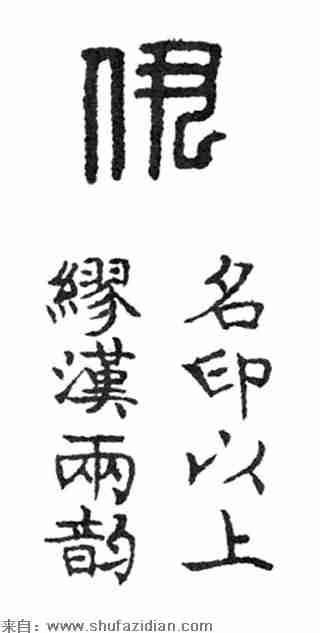 名印以上
繆漢兩韵
来自：www.shufazidian.com